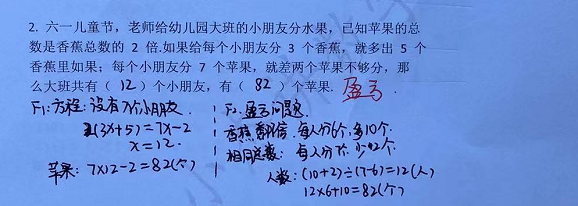 2. 六一儿童节，老师给幼儿园大班的小朋友分水果，已知苹果的总
数是香蕉总数的 2 倍.如果给每个小朋友分 3 个香蕉，就多出 5 个
香蕉里如果；每个小朋友分 7 个苹果，就差两个苹果不够分，那
么大班共有（ 12 ）个小朋友，有（ 82 ）个苹果. 盈亏 .
F1:方程: 设有x个小朋友.
2(3x+5)=7x-2
x=12.
苹果: 7x12-2=82(个)
F2: 盈亏问题.
香蕉翻倍. 每人分6个, 多10个.
相同总数: 每人分7个, 少2个.
人数: (10+2)÷(7-6)=12(人)
12x6+10=82(个)